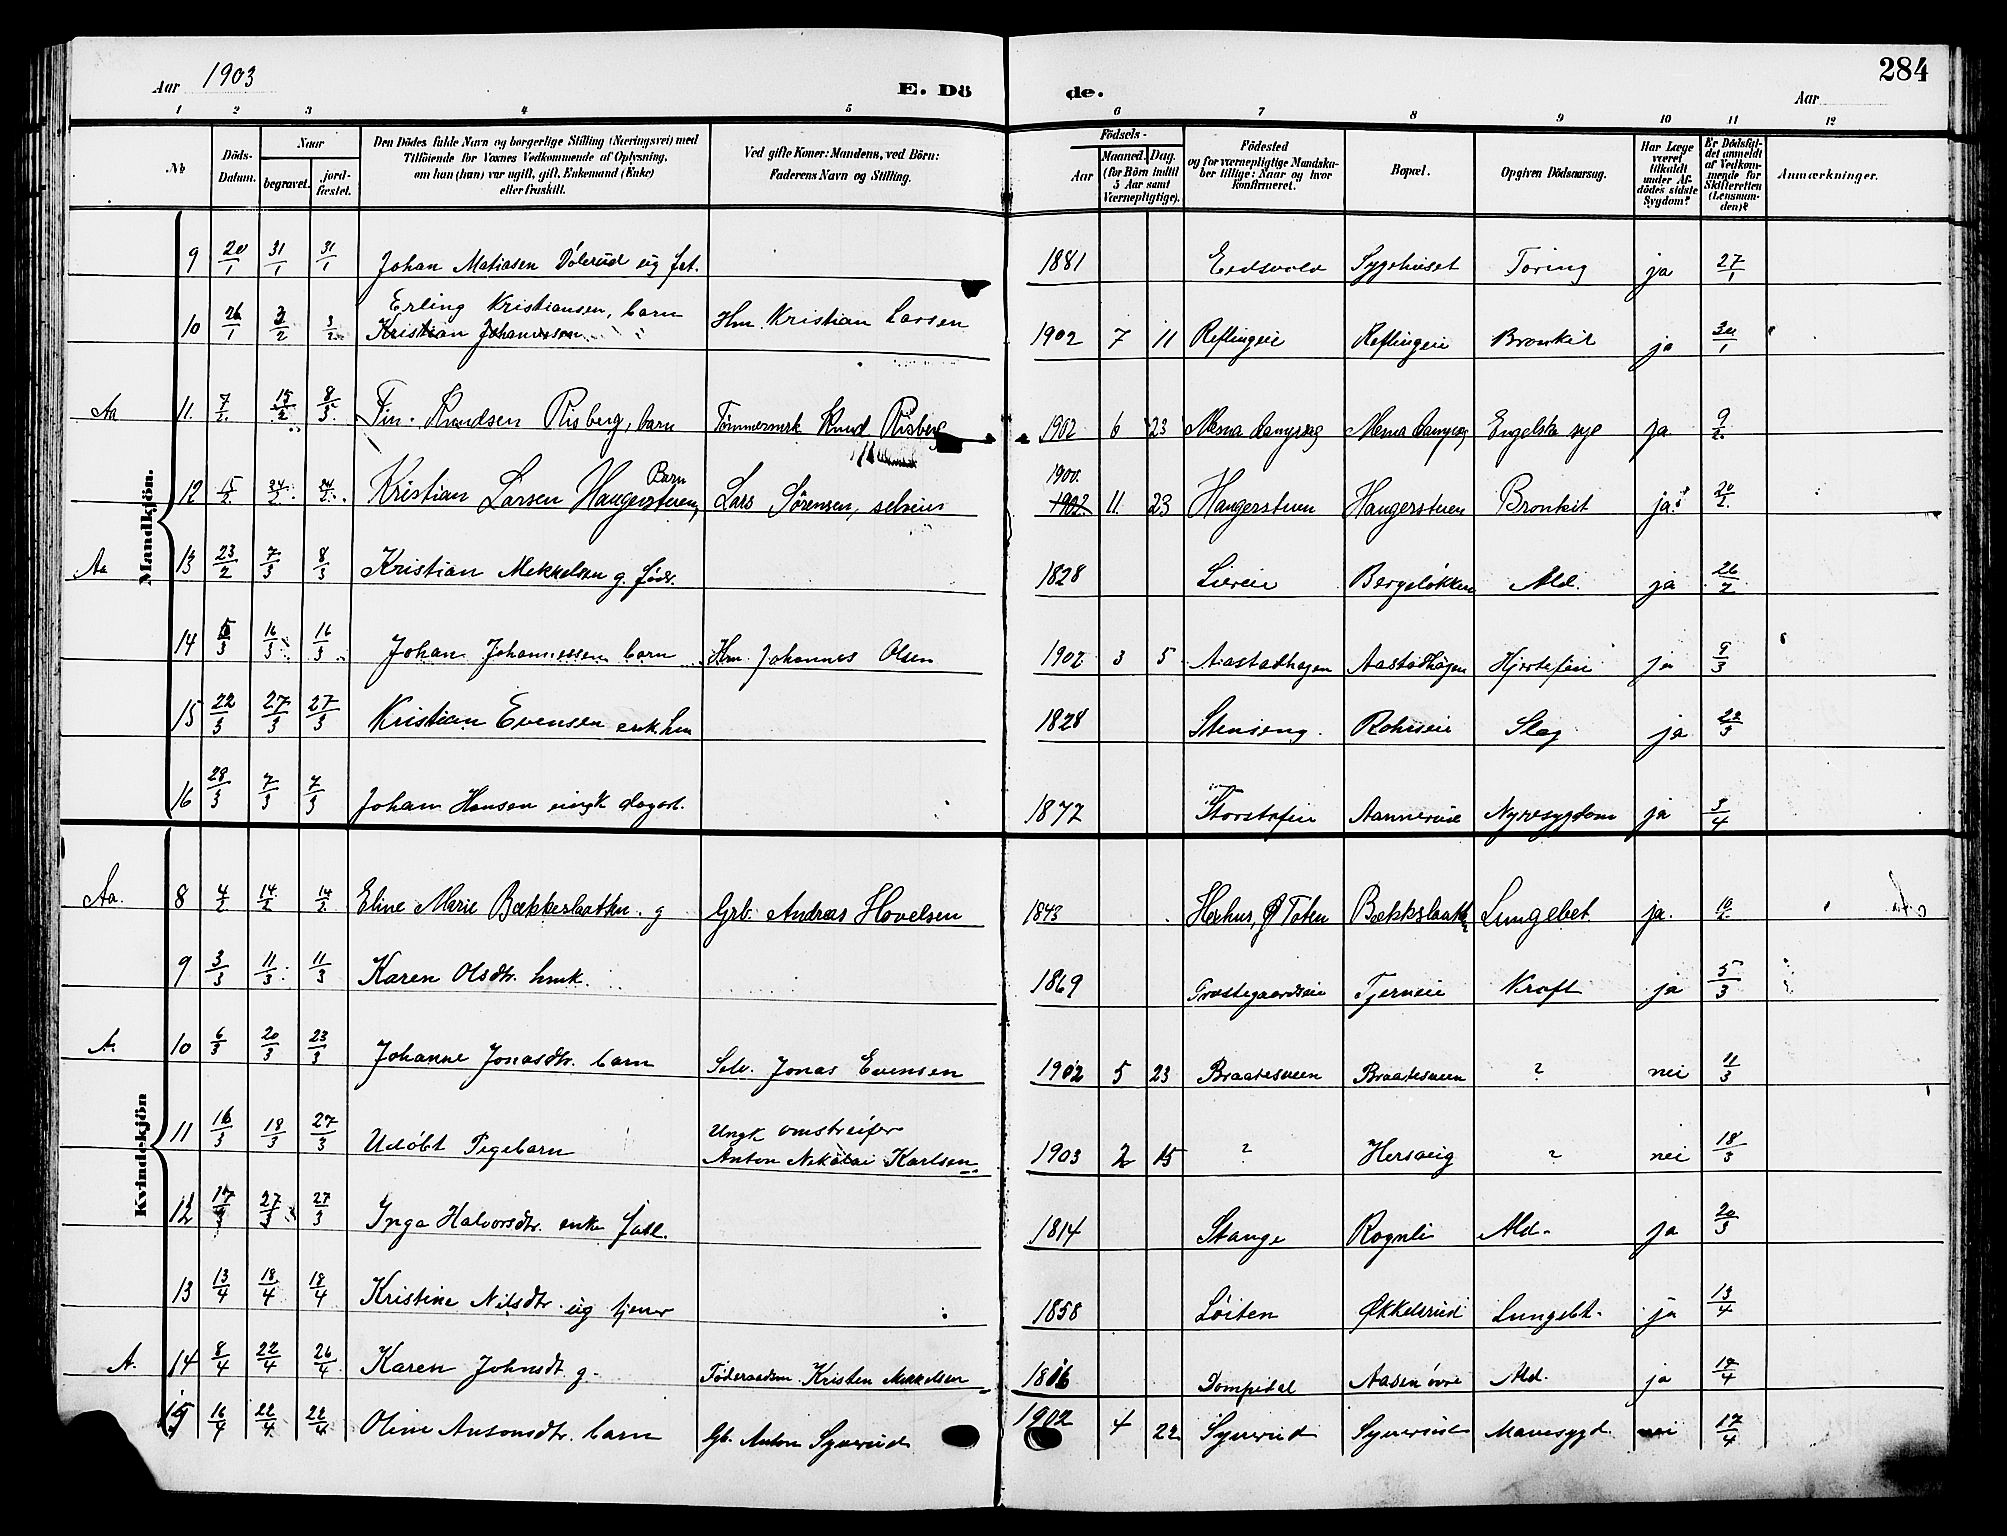 Aar 1903
E. Dö
de.
Aar
284
1 2 3 4 5 6 7 8 9 10 11 12
No
Döds-Datum.
Naar
begravet.
jord-fæstet.
Den Dödes fulde Navn og borgerlige Stilling (Næringsvei) med
Tilföiende for Voxnes Vedkommende af Oplysning,
om han (hun) var ugift, gift, Enkemand (Enke)
eller fraskilt.
Ved gifte Koner: Mandens, ved Börn:
Faderens Navn og Stilling.
Födsels-
Aar
Maaned. Dag.
(for Börn indtil
5 Aar samt
Værnepligtige).
Födested
og for værnepligtige Mandska-
ber tillige: Naar og hvor
konfirmeret.
Bopæl.
Opgiven Dödsaarsag.
Har Læge
været
tilkaldt
under Af-
dödes sidste
Sygdom?
Er Dödsfal-
det anmeldt
af Vedkom-
mende for
Skifteretten
(Lensman-
den)?
Anmærkninger.
Mandkjön.
9 20/1 31/1 31/1 Johan Matiasen Dölerud ug 1881 Eidsvold Sygehuset Tæring ja 27/1
10 26/1 3/2 3/2 Erling Kristiansen, barn Hm. Kristian Larsen 1902 7 11 Reflingeie Reflingeie Bronkit ja 30/1
Kristian Johannesen
Aa 11. 7/2 15/2 8/3 Fin Knudsen Risberg, barn Tömmermrk Knud Risberg 1902 6 23 Mesna Mesna Engelsk syg ja 9/2
12 15/2 24/2 24/2 Kristian Larsen Haugerstuen, Barn Lars Sörensen, selveier 1900. 1902. 11. 23 Haugerstuen Haugerstuen Bronkit ja 20/2
Aa 13 23/2 7/3 8/3 Kristian Mekkelsen g. föds. 1828 Liereie Bergelökken Ald. ja 26/2
14 5/3 16/3 16/3 Johan Johannessen barn Hm. Johannes Olsen 1902 3 5 Aastadhagen Aastadhagen Hjertefeil ja 9/3
15 22/3 27/3 27/3 Kristian Evensen enk. hm 1828 Stenseng. Rohseie Slag ja 28/3
16 28/3 7/3 7/3 Johan Hansen ungk dagarb. 1872 Aannerud Nyresygdom ja 3/4
Kvindekjön
Aa. 8 4/2 14/2 14/2 Eline Marie Bækkeslaatten. g Grb. Andreas Hovelsen 1843 Herhus, Ø Toten Bækkslaatt Lungebet. ja. 10/2
9 3/3 11/3 11/3 Karen Olsdtr. hmk. 1869 Præstegaardseie Tjerneie Kræft ja 5/3
A. 10 6/3 20/3 23/3 Johanne Jonasdtr. barn Selv. Jonas Evensen 1902 5 23 Braatesveen Braatesveen ? nei 11/3
11 16/3 19/3 27/3 Udöbt Pigebarn Ungk omstreifer 1903 2 15 ? Hersæig ? nei 18/3
Anton Nikolai Karlsen
12 17/3 27/3 27/3 Inga Halvorsdtr. enke 1814 Stange Rognli Ald. ja 20/3
13 13/4 18/4 18/4 Kristine Nilsdtr. ug tjener 1858 Löiten Økkelsrud Lungebt. ja 13/4
A. 14 8/4 22/4 26/4 Karen Johnsdt. g. Föderaadsm. Kristen Mekkelsen 1816 Dompidal Aasen övre Ald. ja 17/4
15 16/4 22/4 22/4 Oline Antonsdtr. barn Gb. Anton Syverud 1902 4 22 Syverud Syverud Mavesygd. nei 17/4